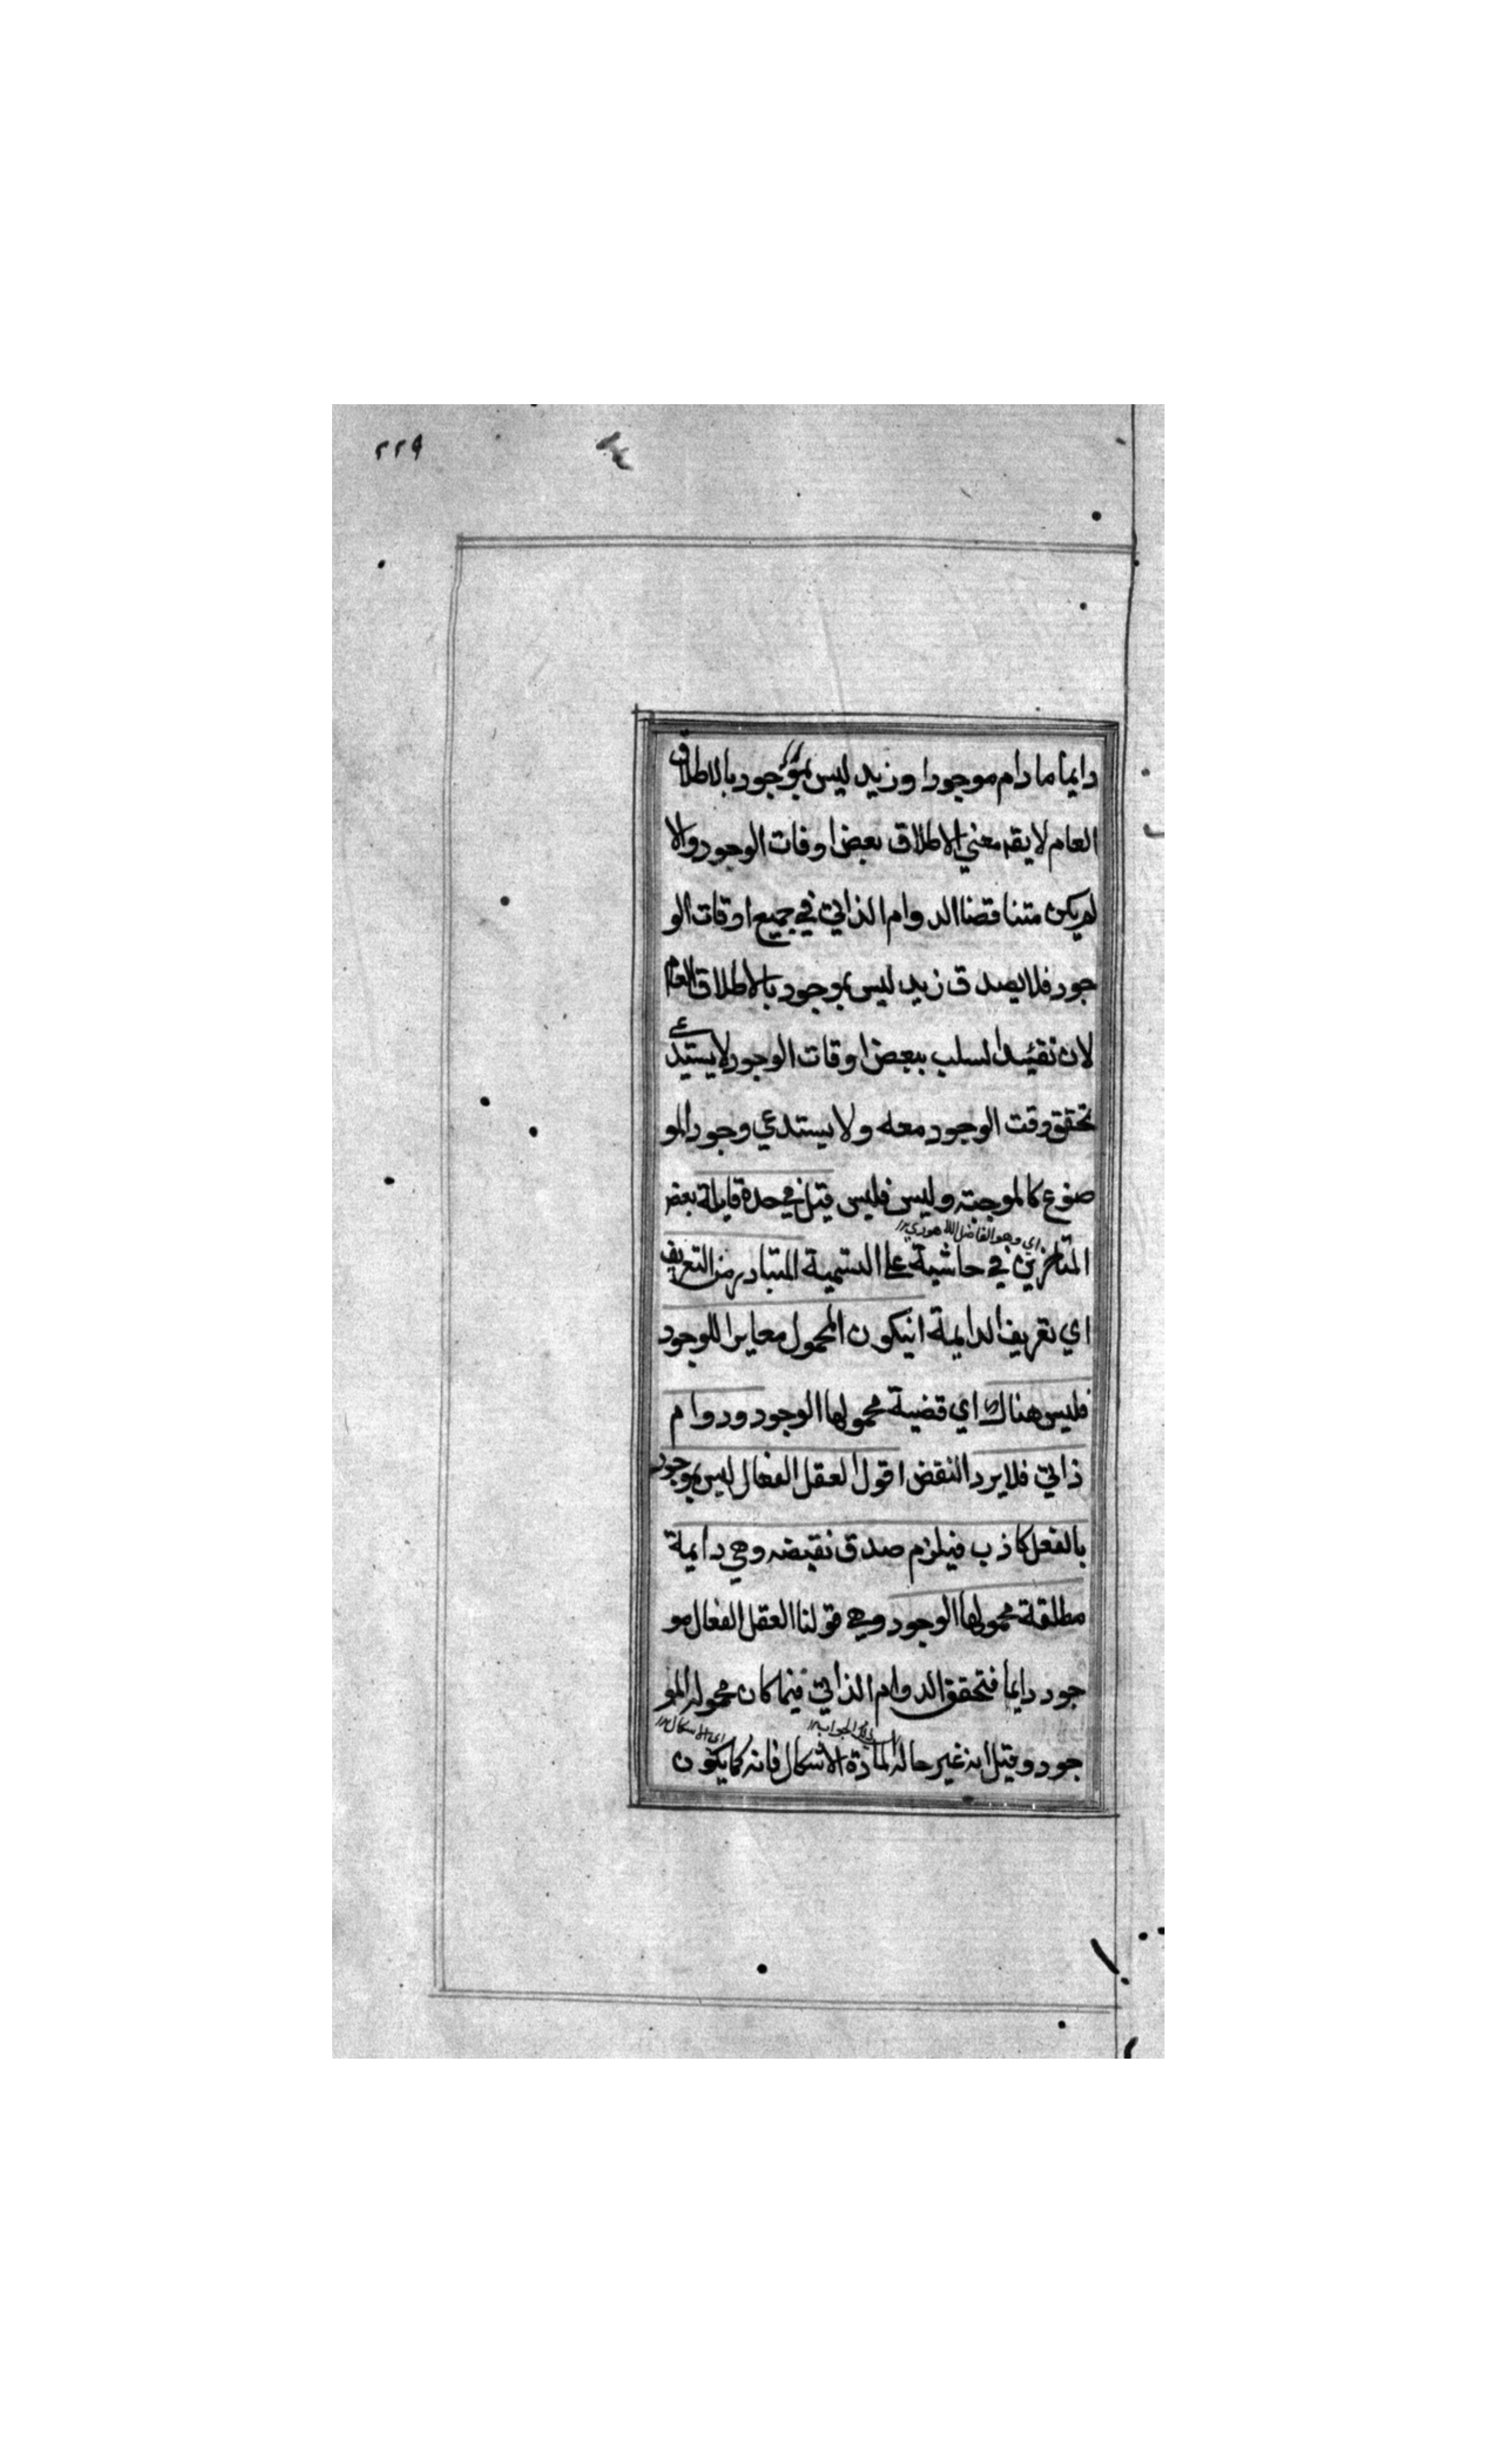 ٢٢٩
دايما ما دام موجودا وزيد ليس بموجود بالاطلاق
العام لا يقم معني الاطلاق بعض اوقات الوجود والا
لم يكن متناقضا الدوام الذاتي في جميع اوقات الو
جود فلا يصدق زيد ليس بموجود بالاطلاق العام
لان نقيد السلب ببعض اوقات الوجود لا يستدعي
تحقق وقت الوجود معه ولا يستدعي وجود المو
ضوع كالموجبة وليس فليس قيل في حده قايله بعض
اي وهو الفاضل اللاهوري ١٢
المتاخرين في حاشية علي الشمسية المتبادر من التعريف
اي تعريف الدايمة انيكون المحمول مغايرا للوجود
فليس هناك اي قضية محمولها الوجود ودوام
ذاتي فلا يرد النقض اقول العقل الفعال ليس بموجود
بالفعل كاذب فيلزم صدق نقيضه وهي دايمة
مطلقة محمولها الوجود وهي قولنا العقل الفعال مو
جود دايما فتحقق الدوام الذاتي فيما كان محموله المو
اي الاشكال ١٢
جود وقيل انه غير حاله لمادة الاشكال فانه كما يكون